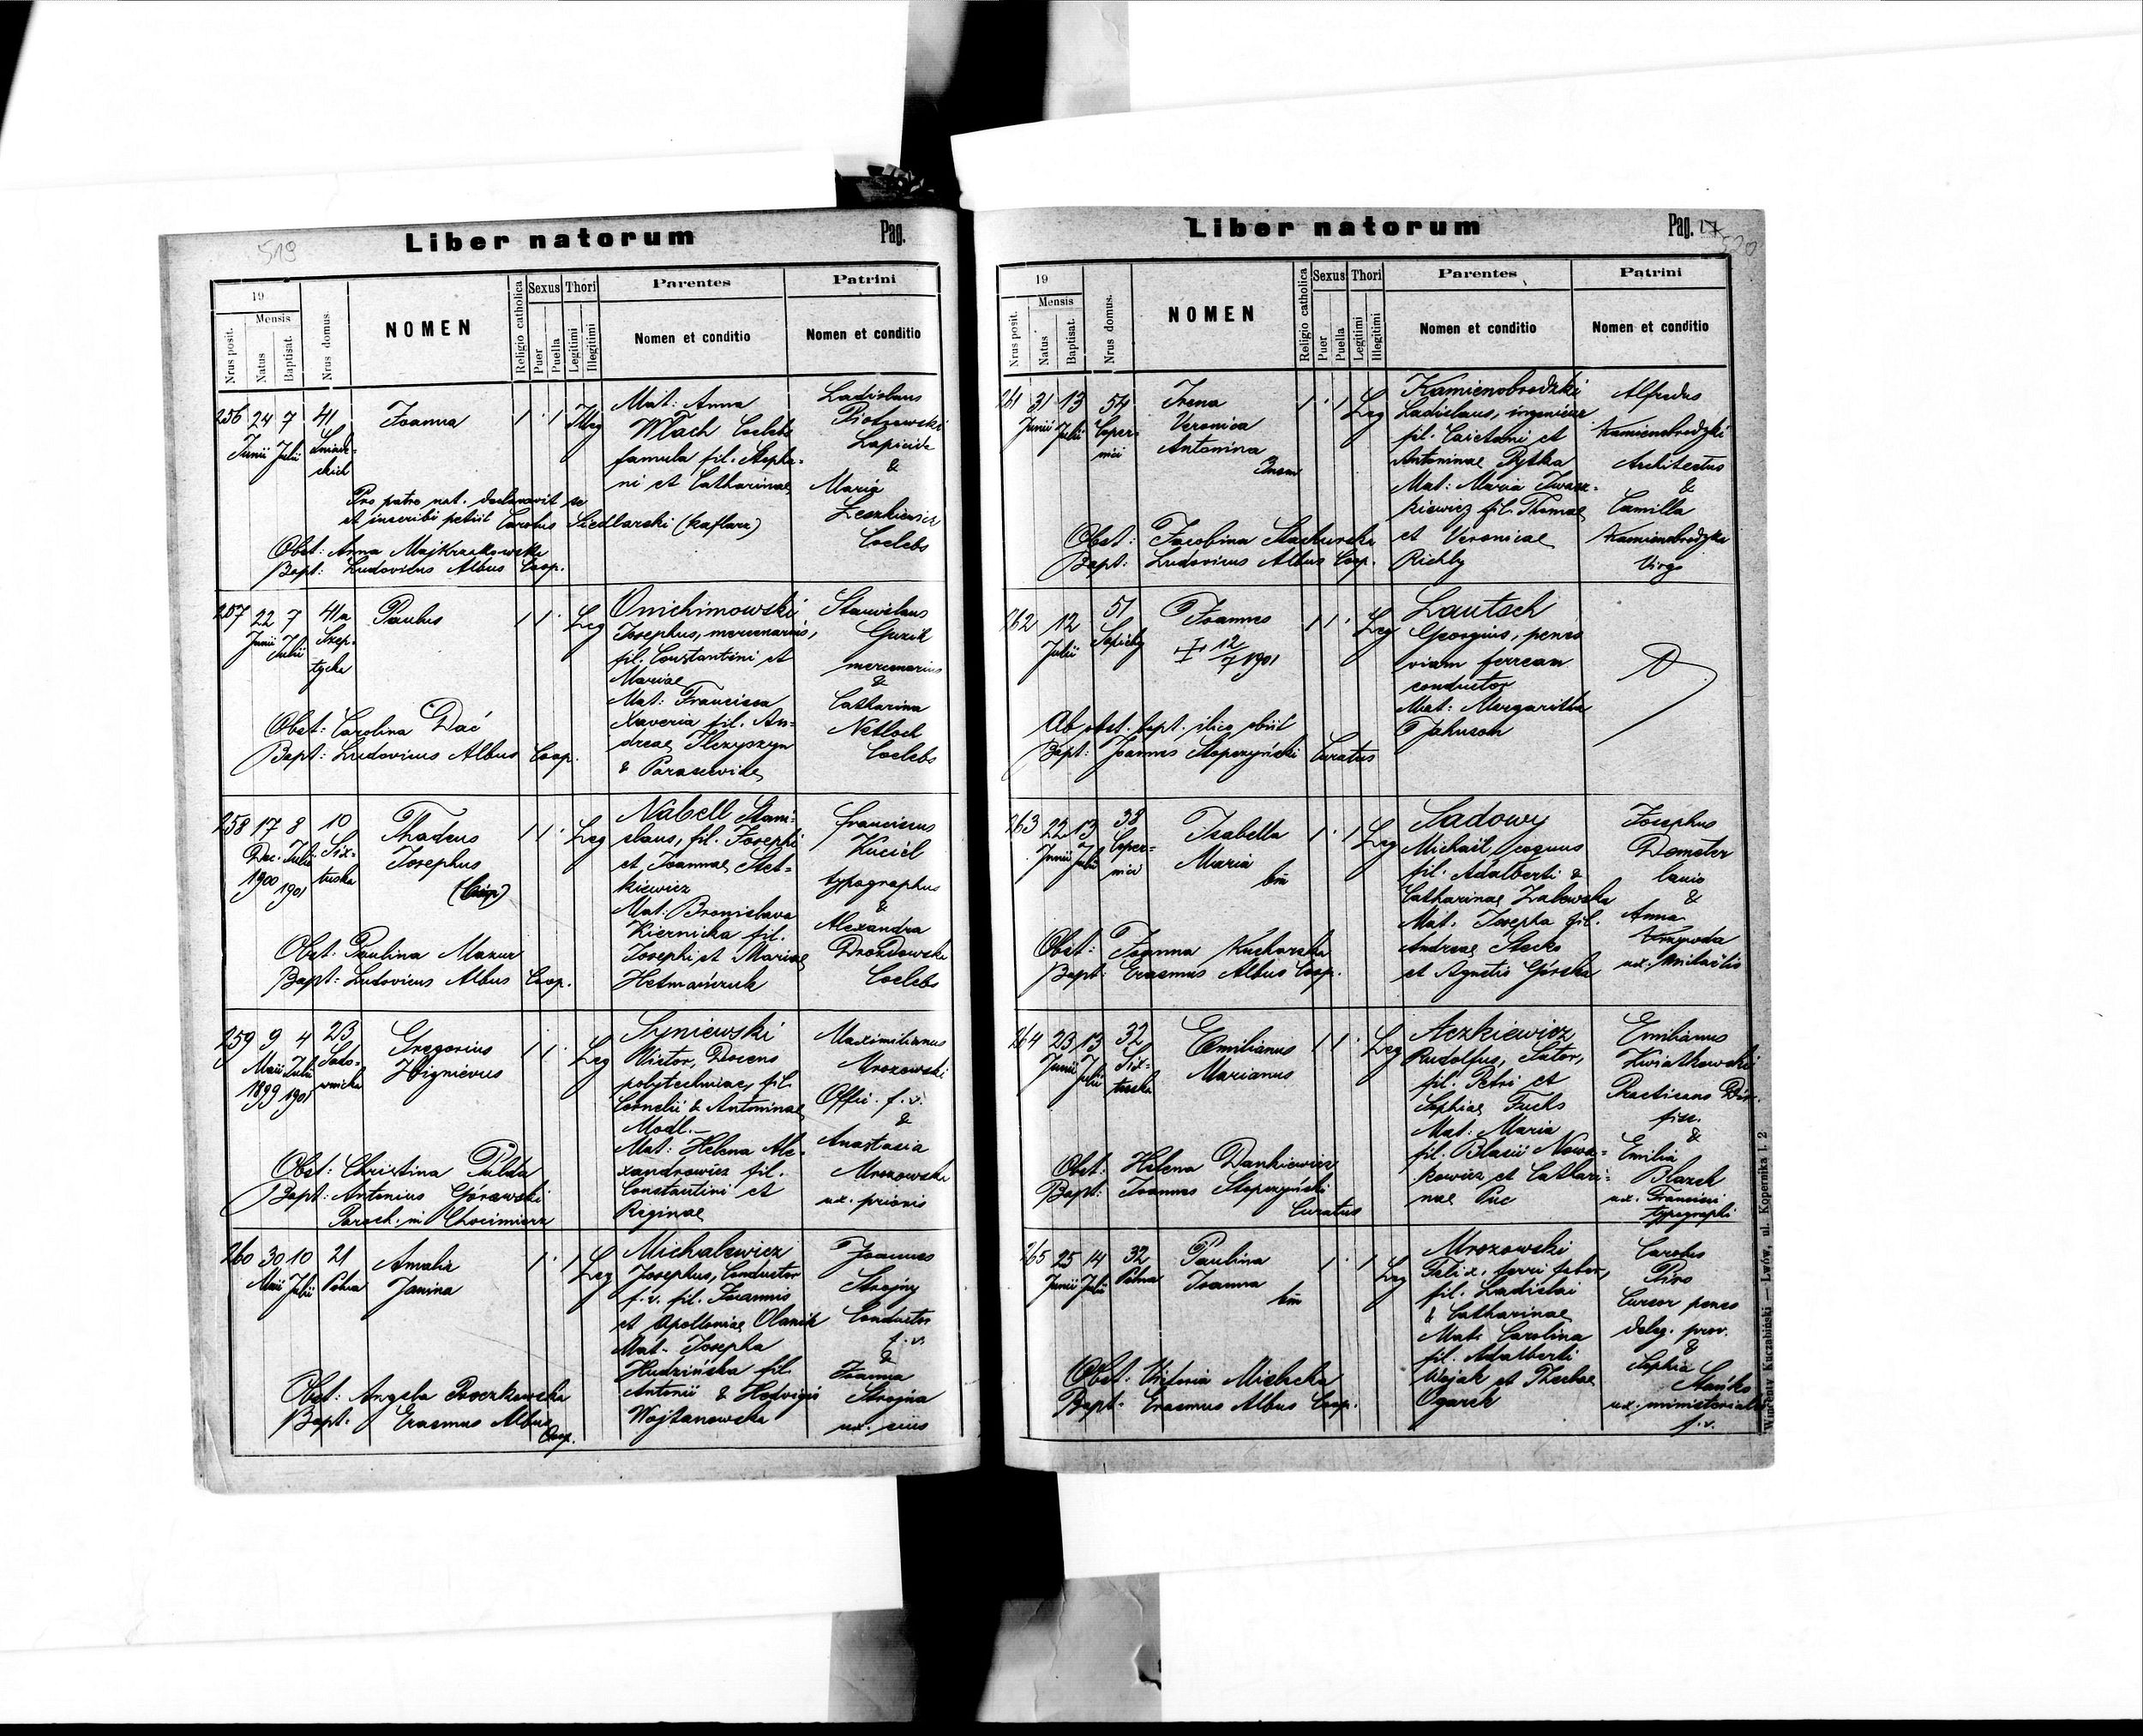 519
Liber natorum
Pag.
19
Mensis
Nrus posit.
Natus
Baptisat.
Nrus domus.
NOMEN
Religio catholica
Sexus
Puer
Puella
Thori
Legitimi
Illegitimi
Parentes
Nomen et conditio
Patrini
Nomen et conditio
256 24 7 41 Joanna 1 · 1 Illeg
Junii Julii Śniade-
ckich
Mat: Anna
Wlach Coelebs
famula fil. Stepha-
ni et Catharinae
Ladislaus
Piotrowski
Lapicida
&
Maria
Leszkiewicz
Coelebs
Pro patre nat. declaravit se
et inscribi petiit Carolus Siedlarski (kaflarz)
Obst: Anna Majkrzakowska
Bapt: Ludovicus Albus Coop.
257 22 7 41a Paulus 1 1 · Leg
Junii Julii Szep-
tycka
Onichimowski
Josephus, mercenarius,
fil. Constantini et
Mariae
Mat: Francisca
Xaveria fil. An-
dreae
& Parasceviae
Stanislaus
Guzik
mercenarius
&
Catharina
Netloch
Coelebs
Obst: Carolina Dać
Bapt: Ludovicus Albus Coop.
258 17 8 10 Thadeus 1 1 · Leg
Dec. Julii Six-
1900 1901 tuska
Josephus
Nabell Stani-
slaus, fil. Josephi
et Joannae Stet-
kiewicz
Mat: Bronislava
Kiernicka fil.
Josephi et Mariae
Hetmańczuk
Franciscus
Kuciel
typographus
&
Alexandra
Drozdowska
Coelebs
Obst: Paulina Mazur
Bapt: Ludovicus Albus Coop.
259 9 4 23 Gregorius 1 1 · Leg
Maii Julii Sado-
1899 1901 wnicka
Zbignievus
Syniewski
Victor, Docens
polytechnicae, fil.
Cornelii & Antoninae
Modl.-
Mat: Helena Ale-
xandrowicz fil.
Constantini et
Reginae
Maximilianus
Mrozowski
Offic. f.v.
&
Anastasia
Mrozowska
ux. prioris
Obst: Christina Pulda
Bapt: Antonius Górawski
Paroch. in Chocimierz
260 30 10 21 Amalia 1 · 1 Leg
Maii Julii Petra
Janina
Michalewicz
Josephus, Conductor
f.v. fil. Joannis
et Apolloniae Olanik
Mat. Josepha
Hudzińska fil.
Antonii & Hedvigis
Wojtanowska
Joannes
Strojny
Conductor
f.v.
&
Joanna
Strojna
ux. eius
Obst: Angela Proczkowska
Bapt: Erasmus Albus
Coop.
Liber natorum
Pag. 17
520
19
Mensis
Nrus posit.
Natus
Baptisat.
Nrus domus.
NOMEN
Religio catholica
Sexus
Puer
Puella
Thori
Legitimi
Illegitimi
Parentes
Nomen et conditio
Patrini
Nomen et conditio
261 31 13 54 Irena 1 · 1 Leg
Junii Julii Coper-
nici
Veronica
Antonina
Kamienobrodzki
Ladislaus, ingenieur
fil. Caietani et
Antoninae Pytka
Mat: Maria Iwasz-
kiewicz fil. Thomae
et Veronicae
Richly
Alfredus
Kamienobrodzki
Architectus
&
Camilla
Kamienobrodzka
Virgo
Obst: Jacobina Stachurska
Bapt: Ludovicus Albus Coop.
262 12 51 Joannes 1 1 · Leg
Julii Sapiehy
12/7 1901
Lautsch
Georgius, penes
viam ferream
conductor
Mat: Margaritha
Jahnson
Ab obst. bapt. ilico obiit
Bapt: Joannes Stopczyński Curatus
263 22 13 38 Isabella 1 · 1 Leg
Junii Julii Coper-
nici
Maria
bm
Sadowy
Michael coquus
fil. Adalberti &
Catharinae Zalewska
Mat. Josepha fil.
Andreae Stecko
et Agnetis Górska
Josephus
Demeter
lanio
&
Anna
ux.
Obst: Joanna Kucharska
Bapt: Erasmus Albus Coop.
264 23 13 32 Emilianus 1 1 · Leg
Junii Julii Six-
tuska
Marianus
Aczkiewicz
Rudolfus, Sutor,
fil. Petri et
Sophiae Fuchs
Mat: Maria
fil. Blasii Nowa-
kowicz et Cathari-
nae Puc
Emilianus
Kwiatkowski
Practicans Dir.
fisc.
&
Emilia
Blazek
ux. Francisci
typographi
Obst: Helena Dankiewicz
Bapt: Joannes Stopczyński
Curatus
265 25 14 32 Paulina 1 · 1 Leg
Junii Julii Petra
Joanna
bm
Mrozowski
Felix, ferri faber,
fil. Ladislai
& Catharinae
Mat: Carolina
fil. Adalberti
Wojak et Theclae
Ogarek
Carolus
Piro
Cursor penes
deleg. prov.
&
Sophia
Stańko
ux. ministerialis
f.v.
Obst: Victoria Micheka
Bapt: Erasmus Albus Coop.
Wincenty Kuczabiński — Lwów, ul. Kopernika l. 2